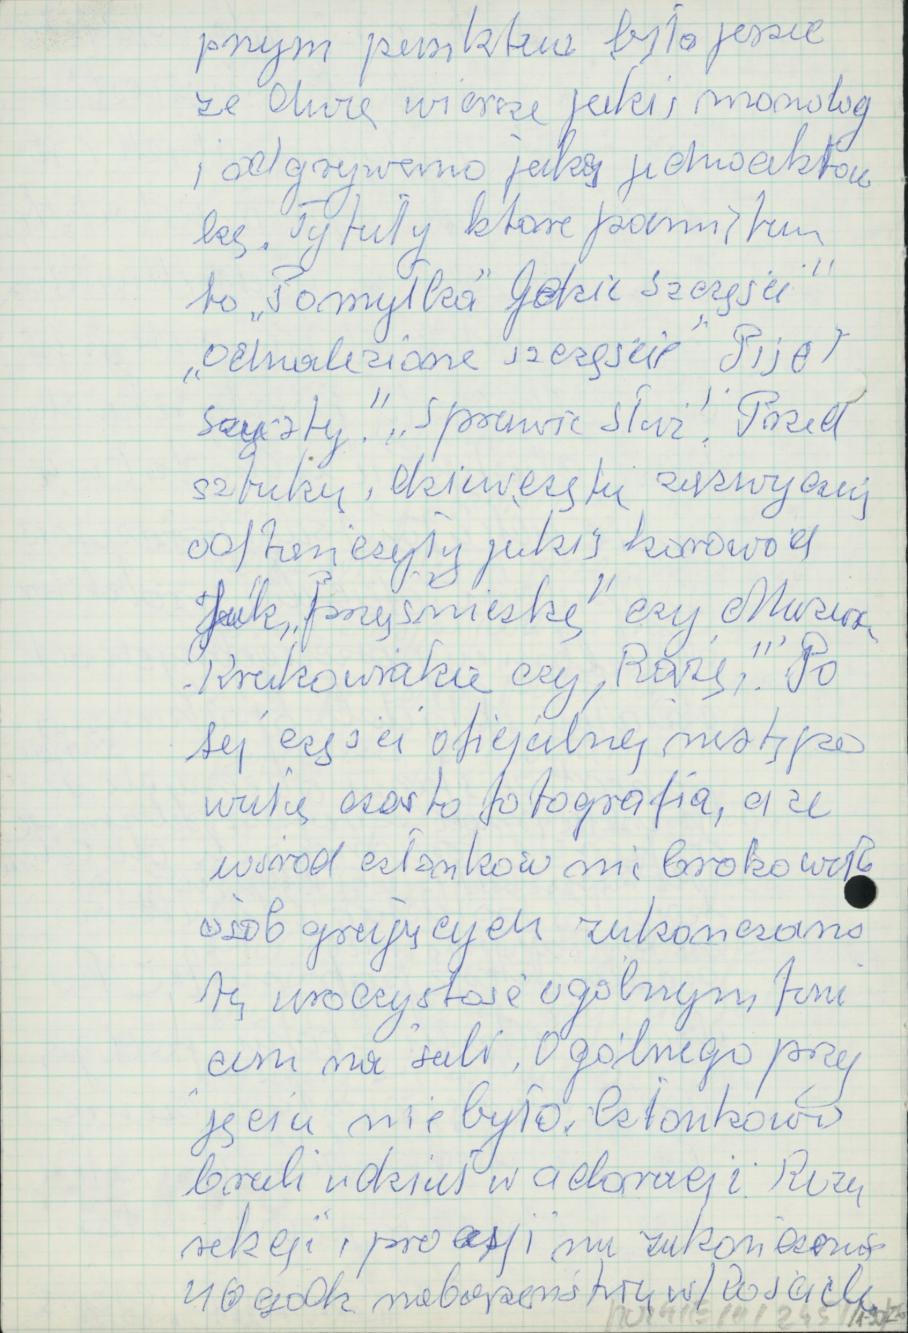 pnym punktem było jeszcze
ze dwa wiersze jakiś monolog
i odgrywano jakąś jednoaktów
kę. Tytuły które pamiętam
to „Pomyłka" Jakie szczęście"
„Odnalezione szczęście" Pije
"Sprawie służ". Przed
sztuką, dziewczęta zazwyczaj
odtańczyły jakiś korowód
Jak „Prząśniczkę" czy Mazura
Krakowiaka czy „Różę". Po
tej części oficjalnej następo
wała często fotografia, a że
wśród członków nie brakowało
osób grających zakończano
tą uroczystość ogólnym tań
cem na sali. Ogólnego przy
jęcia nie było. Członkowie
brali udział w adoracji Rezu
rekcji i procesji na zakończenie
40 godz nabożeństwa w/Kościele